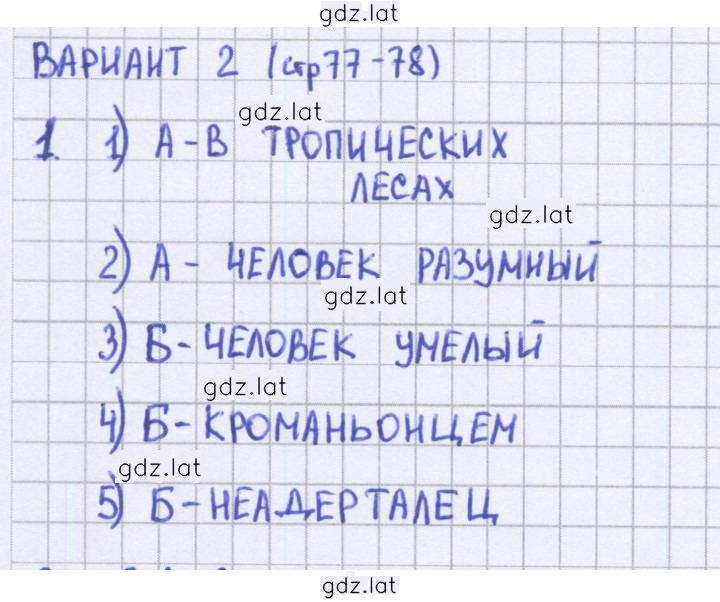 gdz.lat
ВАРИАНТ 2 (стр 77-78)
gdz.lat
1. 1) А - В ТРОПИЧЕСКИХ
ЛЕСАХ
gdz.lat
2) А - ЧЕЛОВЕК РАЗУМНЫЙ
gdz.lat
3) Б - ЧЕЛОВЕК УМЕЛЫЙ
gdz.lat
4) Б - КРОМАНЬОНЦЕМ
gdz.lat
5) Б - НЕАДЕРТАЛЕЦ
gdz.lat